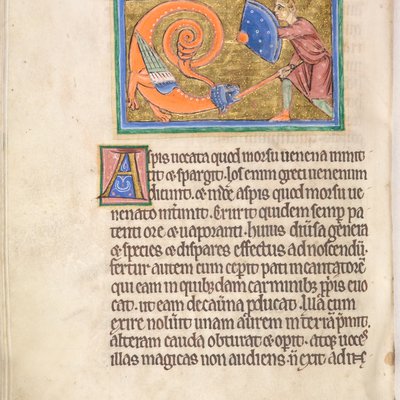 Aspis uocata quod morsu uenena inmit
tit & spargit. Ios enim greci uenenum
dicunt. & inde aspis quod morsu ue
nenato interimit. Currit quidem semper pa
tenti ore & uaporanti. huius diuersa genera
& species & dispares effectus ad noscendum.
fertur autem cum ceperit pati incantatorem
qui eam in quibusdam carminibus propriis euo
cat. ut eam de cauerna producat. Illa cum
exire noluerit unam aurem in terram premit.
alteram cauda obturat & operit. atque uoces
illas magicas non audiens. non exit ad in